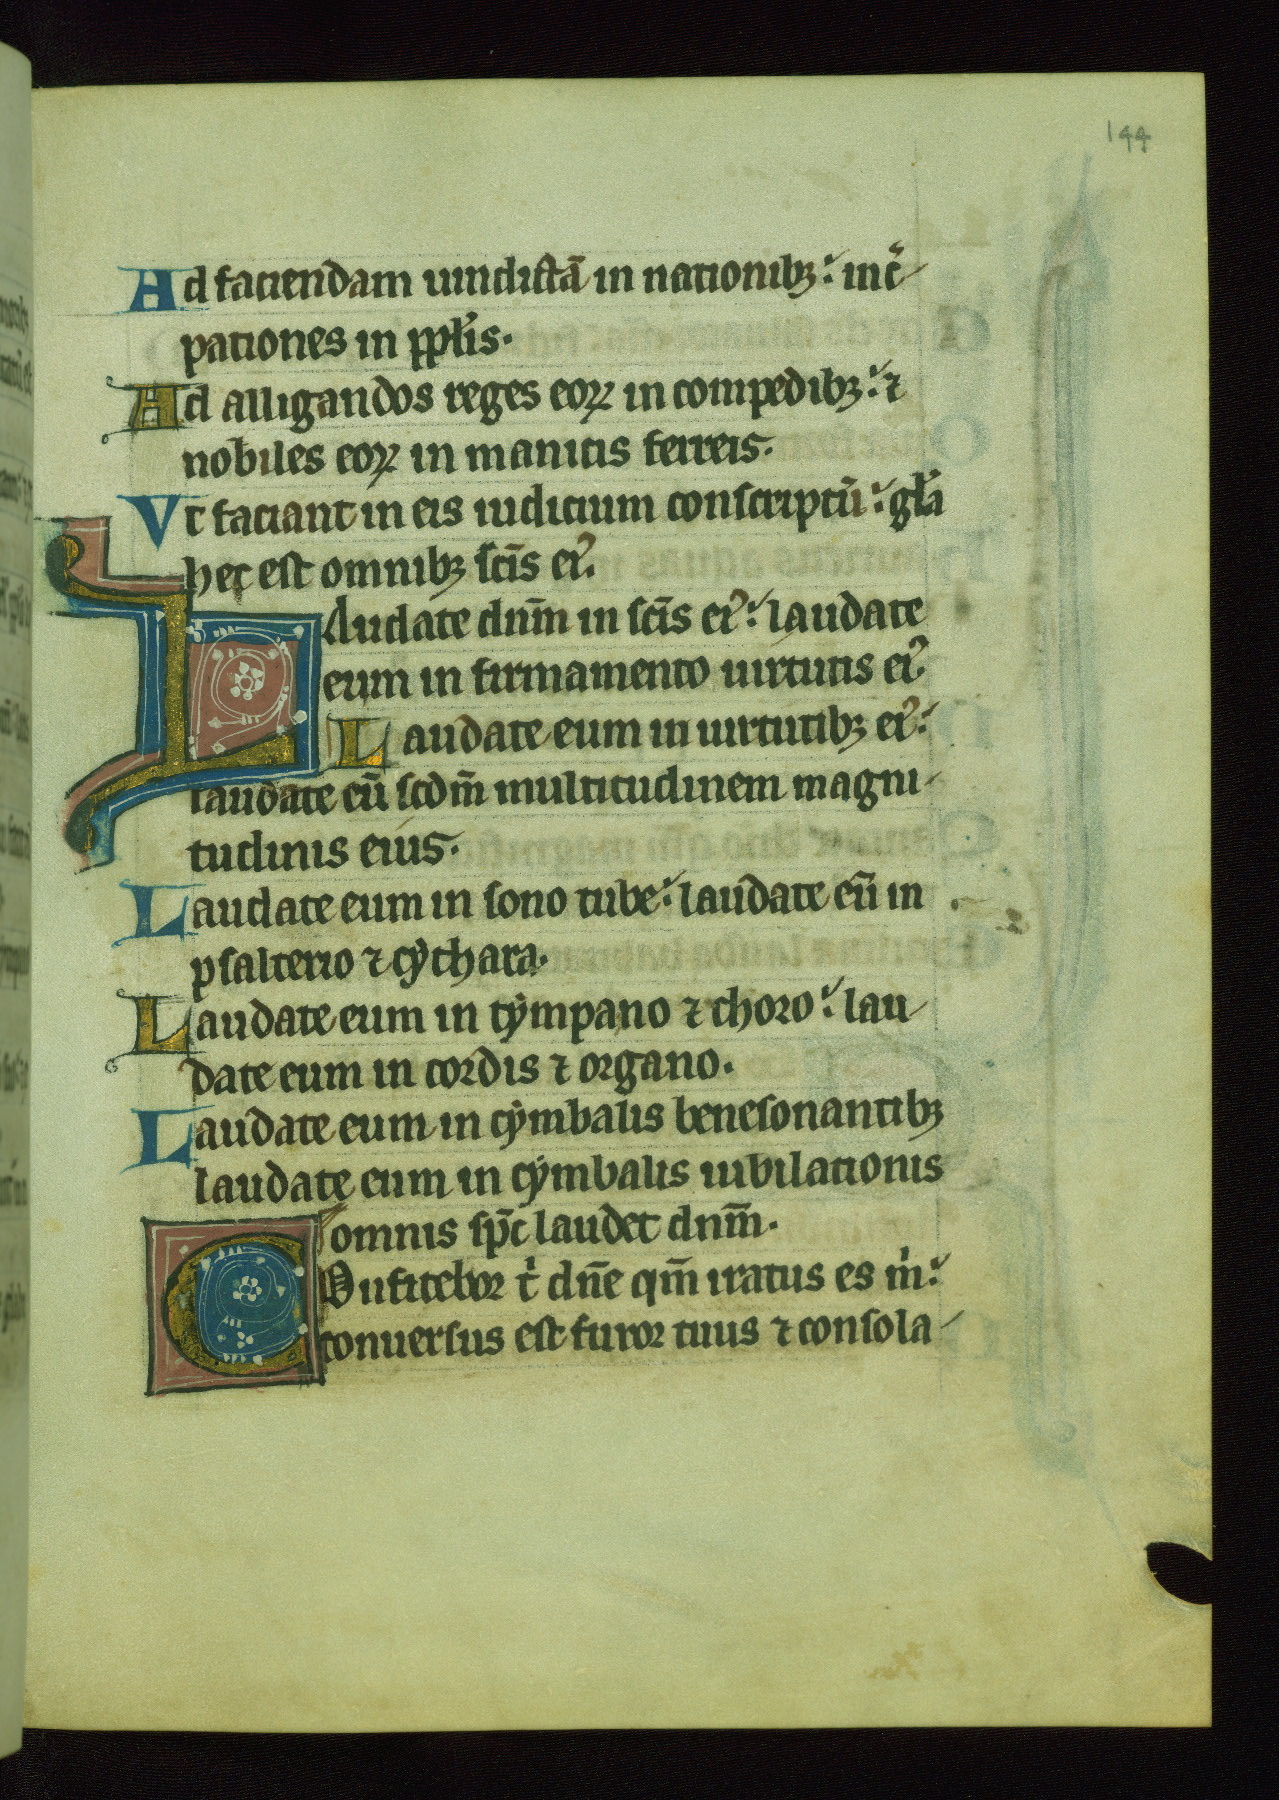 144
Ad faciendam uindictā in nationibꝫ: inc̄
pationes in ppl̄is.
Ad alligandos reges eoꝝ in compedibꝫ: ⁊
nobiles eoꝝ in manicis ferreis.
Vt faciant in eis iudicium conscriptū: gl̄a
hec est omnibꝫ sc̄is ei᾽.
Laudate dnm̄ in sc̄is ei᾽: laudate
eum in firmamento uirtutis ei᾽.
Laudate eum in uirtutibꝫ ei᾽:
laudate eū scdm̄ multitudinem magni
tudinis eius.
Laudate eum in sono tube: laudate eū in
psalterio ⁊ cythara.
Laudate eum in tympano ⁊ choro: lau
date eum in cordis ⁊ organo.
Laudate eum in cymbalis benesonantibꝫ
laudate eum in cymbalis iubilationis
omnis sp̄c laudet dnm̄.
Confitebor t̄ dn̄e qm̄ iratus es m̄:
conuersus est furor tuus ⁊ consola